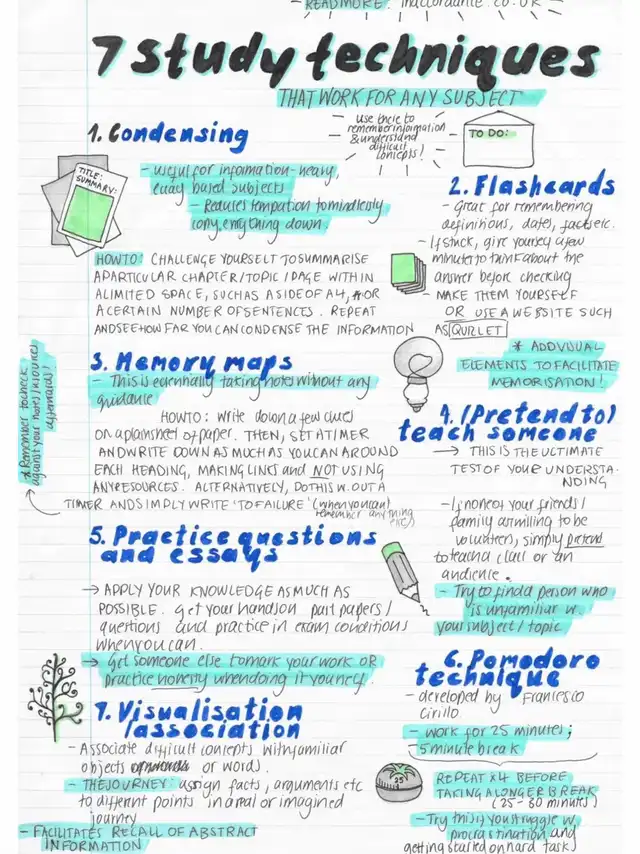 READ MORE: inaccordance.co.uk
7 study techniques
THAT WORK FOR ANY SUBJECT
1. Condensing
TITLE:
SUMMARY:
- useful for information-heavy,
essay based subjects
- Reduces temptation to mindlessly
copy everything down
HOW TO: CHALLENGE YOURSELF TO SUMMARISE
A PARTICULAR CHAPTER/TOPIC/PAGE WITHIN
A LIMITED SPACE, SUCH AS A SIDE OF A4, OR
A CERTAIN NUMBER OF SENTENCES. REPEAT
AND SEE HOW FAR YOU CAN CONDENSE THE INFORMATION
use these to
remember information
& understand
difficult
concepts!
TO DO:
2. Flashcards
- Great for remembering
definitions, dates, facts etc.
- If stuck, give yourself a few
minutes to think about the
answer before checking
- MAKE THEM YOURSELF
OR USE A WEBSITE SUCH
AS QUIZLET
* ADD VISUAL
ELEMENTS TO FACILITATE
MEMORISATION!
3. Memory maps
- This is essentially taking notes without any
guidance
HOW TO: write down a few clues
on a plain sheet of paper. THEN, SET A TIMER
AND WRITE DOWN AS MUCH AS YOU CAN AROUND
EACH HEADING, MAKING LINKS and NOT USING
ANY RESOURCES. ALTERNATIVELY, DO THIS W.OUT A
TIMER AND SIMPLY WRITE 'TO FAILURE' (when you can't
remember anything
else)
*Remember to check
against your notes/resources
afterwards!
4. (Pretend to)
teach someone
→ THIS IS THE ULTIMATE
TEST OF YOUR UNDERSTA-
NDING
- If none of your friends/
family are willing to be
volunteers, simply pretend
to teach a class or an
audience.
- Try to find a person who
is unfamiliar w.
your subject/topic
5. Practice questions
and essays
→ APPLY YOUR KNOWLEDGE AS MUCH AS
POSSIBLE. get your hands on past papers/
questions and practice in exam conditions
when you can.
→ get someone else to mark your work OR
practice honesty when doing it yourself.
6. Pomodoro
technique
- developed by Francesco
Cirillo
- work for 25 minutes;
5 minute break
25
REPEAT x4 BEFORE
TAKING A LONGER BREAK
(25-30 minutes)
- Try this if you struggle w.
procrastination and
getting started on hard tasks
7. Visualisation
/association
- Associate difficult concepts with familiar
objects or words.
- THE JOURNEY: assign facts, arguments etc
to different points in a real or imagined
journey
- FACILITATES RECALL OF ABSTRACT
INFORMATION